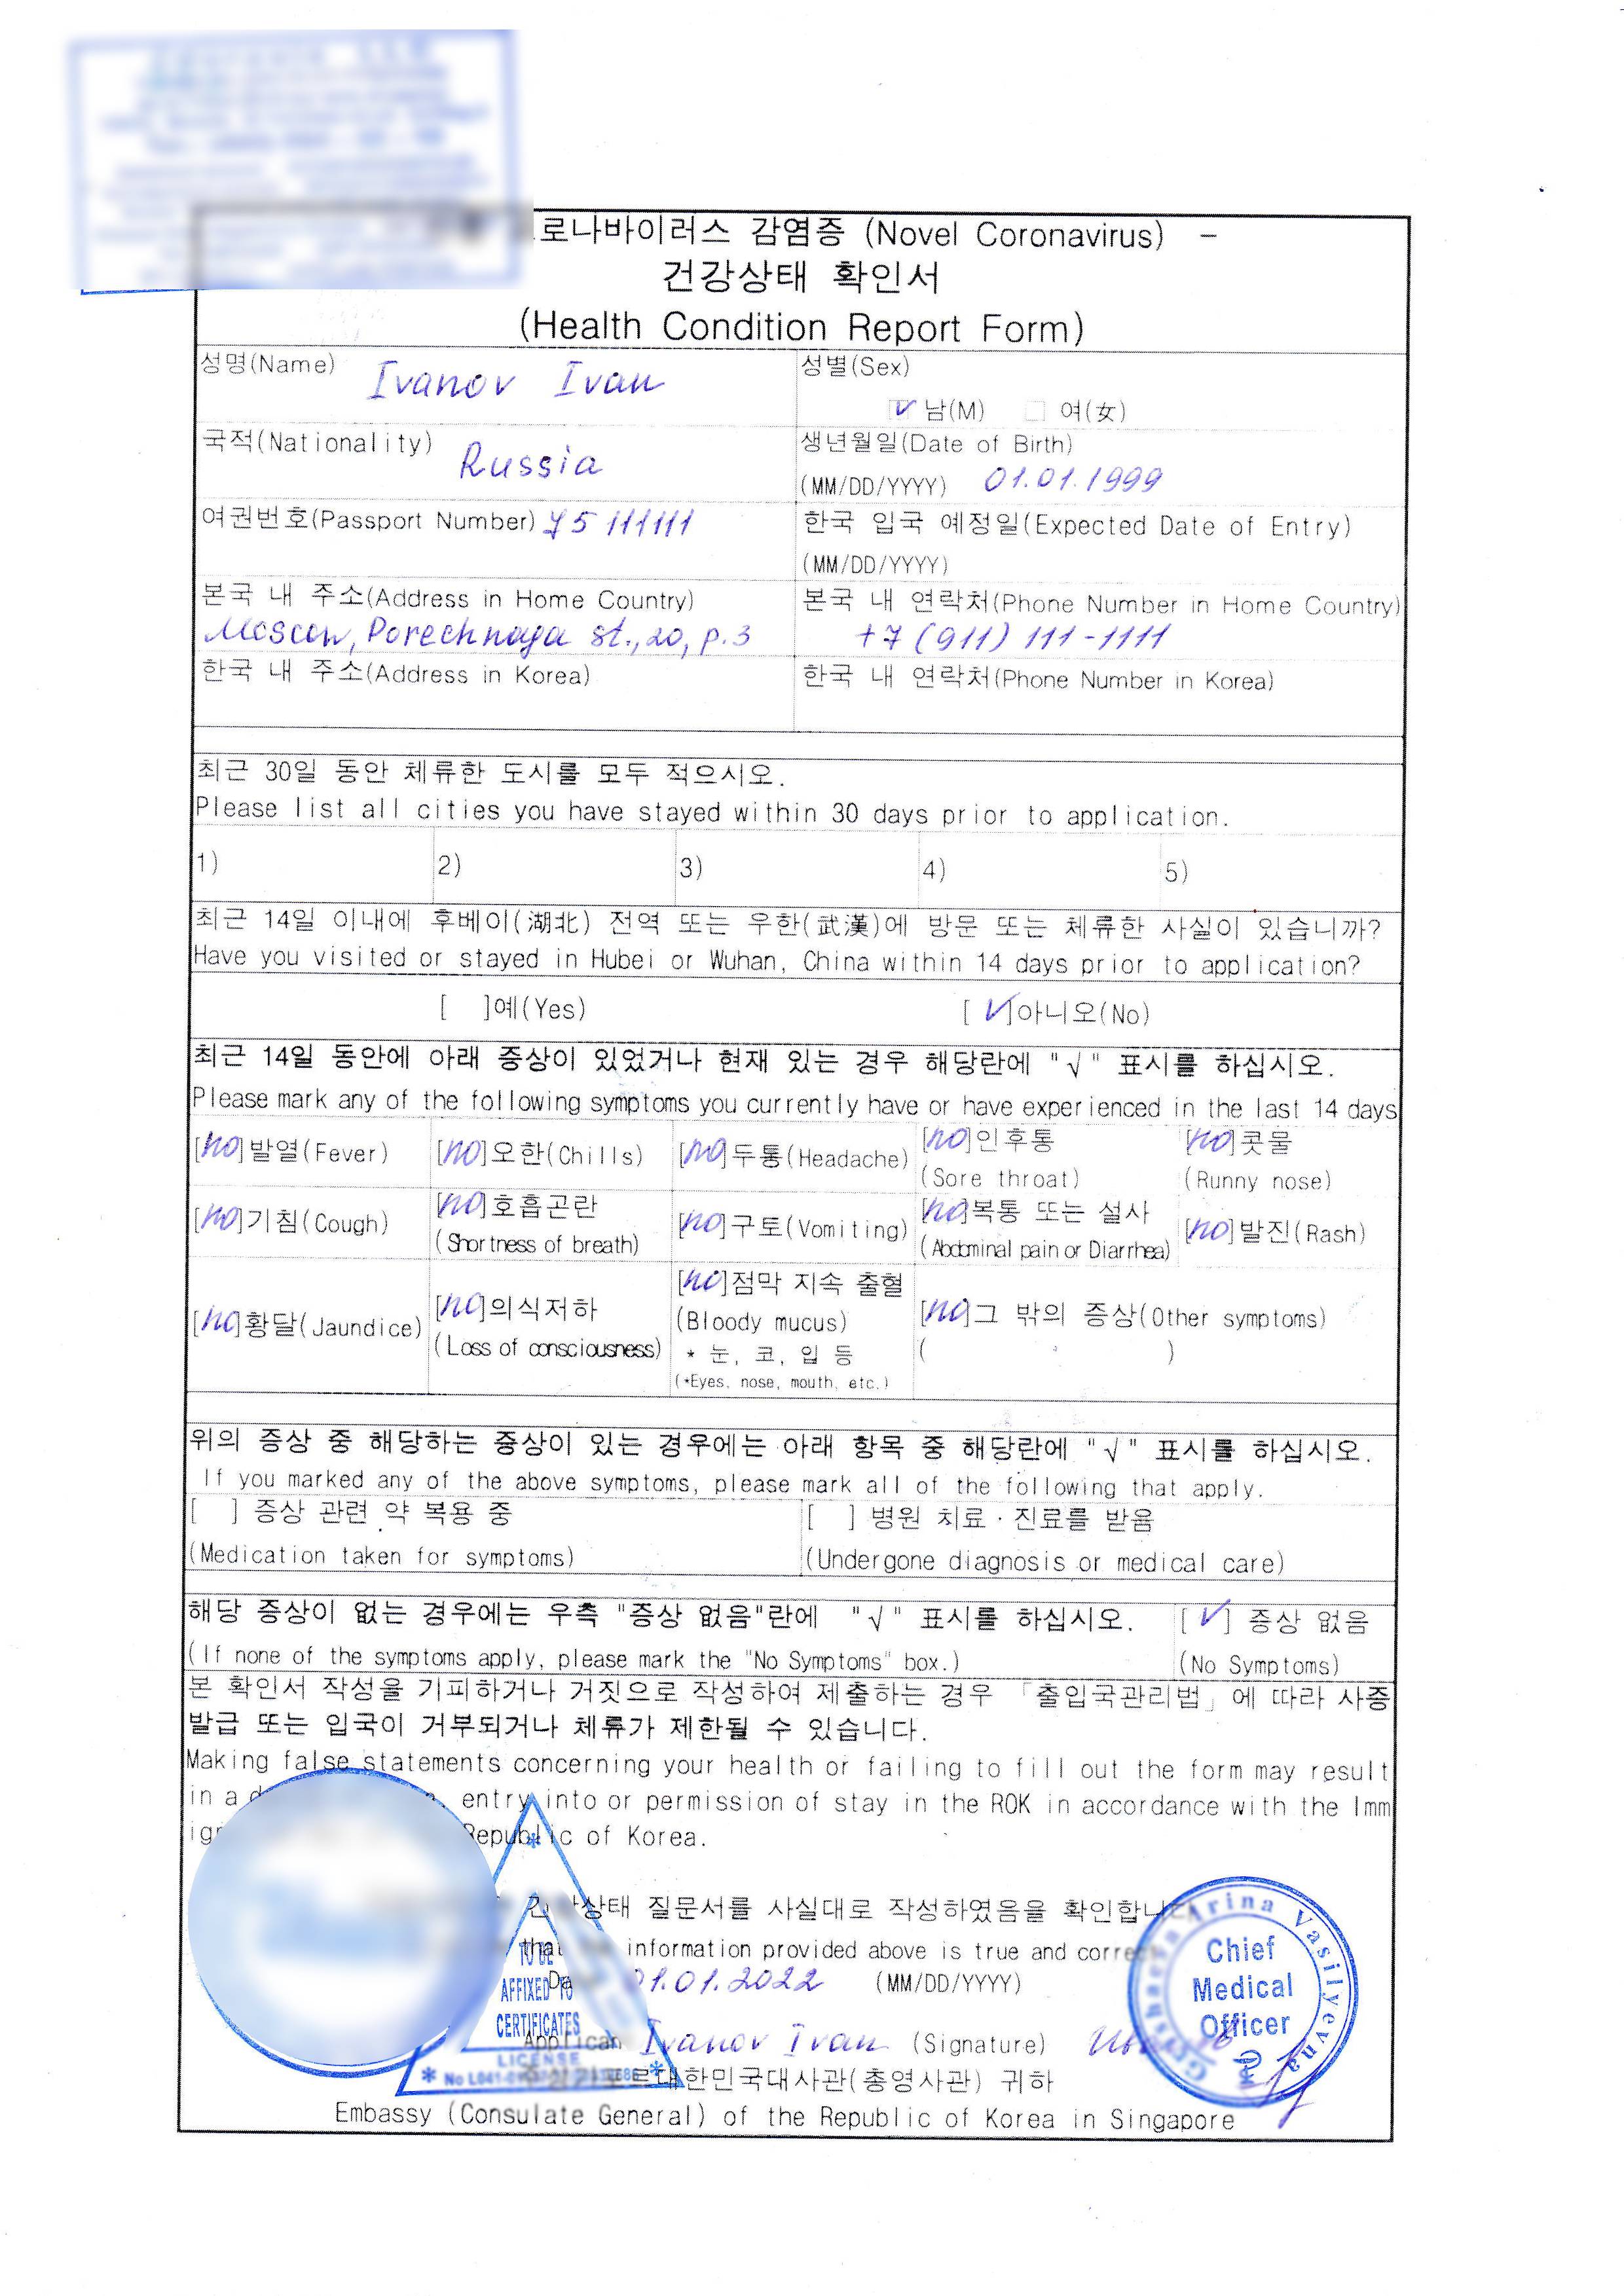 로나바이러스 감염증 (Novel Coronavirus) -
건강상태 확인서
(Health Condition Report Form)
성명(Name) Ivanov Ivan
성별(Sex)
✓ 남(M) 여(女)
국적(Nationality) Russia
생년월일(Date of Birth)
(MM/DD/YYYY) 01.01.1999
여권번호(Passport Number) 75 111111
한국 입국 예정일(Expected Date of Entry)
(MM/DD/YYYY)
본국 내 주소(Address in Home Country)
Moscow, Porechnaya st., 20, p.3
본국 내 연락처(Phone Number in Home Country)
+7 (911) 111-1111
한국 내 주소(Address in Korea)
한국 내 연락처(Phone Number in Korea)
최근 30일 동안 체류한 도시를 모두 적으시오.
Please list all cities you have stayed within 30 days prior to application.
1) 2) 3) 4) 5)
최근 14일 이내에 후베이(湖北) 전역 또는 우한(武漢)에 방문 또는 체류한 사실이 있습니까?
Have you visited or stayed in Hubei or Wuhan, China within 14 days prior to application?
[ ]예(Yes) [✓]아니오(No)
최근 14일 동안에 아래 증상이 있었거나 현재 있는 경우 해당란에 "√" 표시를 하십시오.
Please mark any of the following symptoms you currently have or have experienced in the last 14 days
[no]발열(Fever) [no]오한(Chills) [no]두통(Headache) [no]인후통 [no]콧물
(Sore throat) (Runny nose)
[no]기침(Cough) [no]호흡곤란 [no]구토(Vomiting) [no]복통 또는 설사 [no]발진(Rash)
(Shortness of breath) (Abdominal pain or Diarrhea)
[no]황달(Jaundice) [no]의식저하 [no]점막 지속 출혈 [no]그 밖의 증상(Other symptoms)
(Loss of consciousness) (Bloody mucus) ( )
* 눈, 코, 입 등
(*Eyes, nose, mouth, etc.)
위의 증상 중 해당하는 증상이 있는 경우에는 아래 항목 중 해당란에 "√" 표시를 하십시오.
If you marked any of the above symptoms, please mark all of the following that apply.
[ ] 증상 관련 약 복용 중 [ ] 병원 치료·진료를 받음
(Medication taken for symptoms) (Undergone diagnosis or medical care)
해당 증상이 없는 경우에는 우측 "증상 없음"란에 "√" 표시를 하십시오. [✓] 증상 없음
(If none of the symptoms apply, please mark the "No Symptoms" box.) (No Symptoms)
본 확인서 작성을 기피하거나 거짓으로 작성하여 제출하는 경우 「출입국관리법」에 따라 사증
발급 또는 입국이 거부되거나 체류가 제한될 수 있습니다.
Making false statements concerning your health or failing to fill out the form may result
in a entry into or permission of stay in the ROK in accordance with the Imm
Republic of Korea.
상태 질문서를 사실대로 작성하였음을 확인합니
that information provided above is true and correc
01.01.2022 (MM/DD/YYYY)
Applican Ivanov Ivan (Signature)
르대한민국대사관(총영사관) 귀하
Embassy (Consulate General) of the Republic of Korea in Singapore
TO BE
AFFIXED TO
CERTIFICATES
LICENSE
Arina Vasilyevna
Chief
Medical
Officer